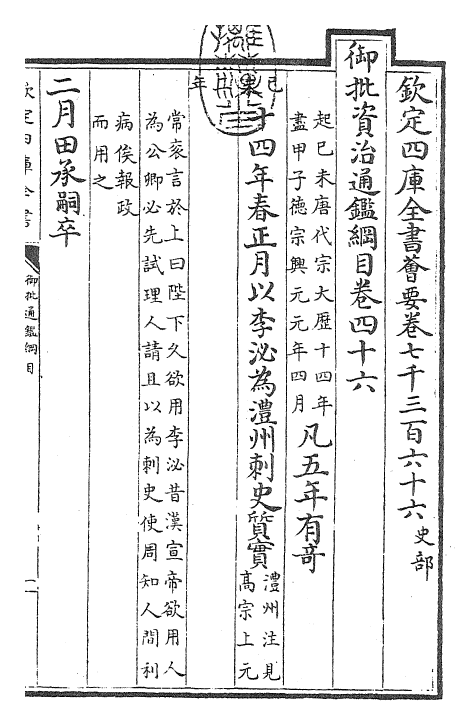 欽定四庫全書薈要卷七千三百六十六史部
御批資治通鑑綱目卷四十六
起己未唐代宗大歷十四年
盡甲子德宗興元元年四月
凡五年有奇
己未年
十四年春正月以李泌為澧州刺史質實
澧州注見
髙宗上元
常衮言於上曰陛下久欲用李泌昔漢宣帝欲用人
為公卿必先試理人請且以為刺史使周知人間利
病俟報政
而用之
二月田承嗣卒
欽定四庫全書
御批通鑑綱目